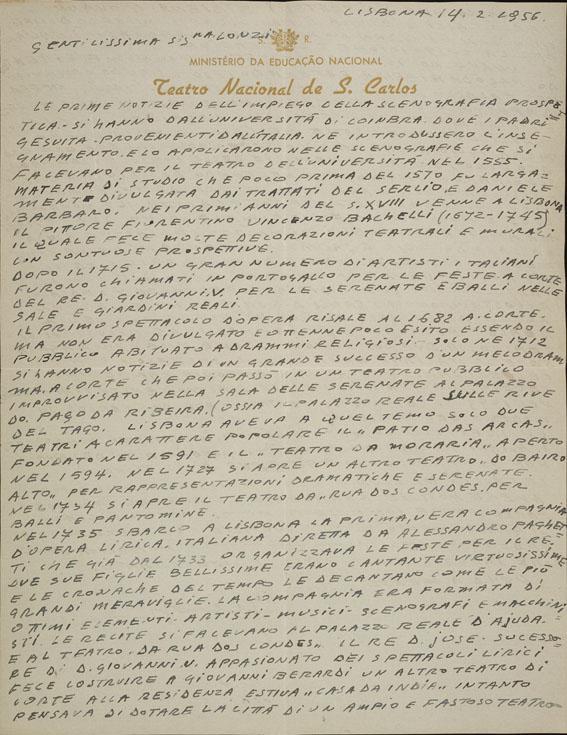 LISBONA 14.2.1956.
GENTILISSIMA SIS NA LONZI
S. R.
MINISTÉRIO DA EDUCAÇÃO NACIONAL
Teatro Nacional de S. Carlos
LE PRIME NOTIZIE DELL'IMPIEGO DELLA SCENOGRAFIA PROSPE=
TICA - SI HANNO DALL'UNIVERSITÁ DI COINBRA. DOVE I PADRI
GESUITA - PROVENIENTI DALL'ITALIA. NE INTRODUSSERO L'INSE-
GNAMENTO. E LO APPLICARONO NELLE SCENOGRAFIE CHE SI
FACEVANO PER IL TEATRO DELL'UNIVERSITÀ NEL 1555.
MATERIA DI STUDIO CHE POCO PRIMA DEL 1570 FU LARGA=
MENTE DIVULGATA DAI TRATTATI DEL SERLIO, E DANIELE
BARBARO. NEI PRIMI ANNI DEL S. XVIII VENNE A LISBONA
IL PITTORE FIORENTINO VINCENZO BACHELLI (1672-1745)
IL QUALE FECE MOLTE DECORAZIONI TEATRALI E MURALI
CON SONTUOSE PROSPETTIVE.
DOPO IL 1715. UN GRAN NUMERO DI ARTISTI ITALIANI
FURONO CHIAMATI IN PORTOGALLO PER LE FESTE A CORTE
DEL RE. D. GIOVANNI V. PER LE SERENATE E BALLI NELLE
SALE E GIARDINI REALI.
IL PRIMO SPETTACOLO D'OPERA RISALE AL 1682 A CORTE.
MA NON ERA DIVULGATO E OTTENNE POCO ESITO ESSENDO IL
PUBBLICO ABITUATO A DRAMMI RELIGIOSI - SOLO NE 1712
SI HANNO NOTIZIE DI UN GRANDE SUCCESSO D'UN MELODRAM
MA. A CORTE CHE POI PASSÒ IN UN TEATRO PUBBLICO
IMPROVVISATO NELLA SALA DELLE SERENATE AL PALAZZO
DO. PAGO DA RIBEIRA. (OSSIA IL PALAZZO REALE SULLE RIVE
DEL TAGO. LISBONA AVEVA A QUEL TEMO SOLO DUE
TEATRI A CARATTERE POPOLARE IL "PATIO DAS ARCAS"
FONDATO NEL 1591 E IL "TEATRO DA MORARIA" APERTO
NEL 1594. NEL 1727 SI APRE UN ALTRO TEATRO "DO BAIRO
ALTO" PER RAPPRESENTAZIONI DRAMATICHE E SERENATE.
NEL 1734 SI APRE IL TEATRO DA "RUA DOS CONDES. PER
BALLI E PANTOMINE.
NEL 1735 SBARCO A LISBONA LA PRIMA, VERA COMPAGNIA
D'OPERA LIRICA. ITALIANA DIRETTA DA ALESSANDRO PAGHET=
TI CHE GIÀ DAL 1733 ORGANIZZAVA LE FESTE PER IL RE.
DUE SUE FIGLIE BELLISSIME ERANO CANTANTE VIRTUOSISSIME
E LE CRONACHE DEL TEMPO LE DECANTANO COME LE PIÙ
GRANDI MERAVIGLIE. LA COMPAGNIA ERA FORMATA DI
OTTIMI ELEMENTI. ARTISTI - MUSICI - SCENOGRAFI E MACCHINI
STI LE RECITE SI FACEVANO AL PALAZZO REALE D'AJUDA.
E AL TEATRO "DA RUA DOS CONDES" IL RE D. JOSE. SUCCESSO=
RE DI D. GIOVANNI V. APPASIONATO DEI SPETTACOLI LIRICI
FECE COSTRUIRE A GIOVANNI BERARDI UN ALTRO TEATRO DI
CORTE ALLA RESIDENZA ESTIVA "CASA DA INDIA" INTANTO
PENSAVA DI DOTARE LA CITTÀ DI UN AMPIO E FASTOSO TEATRO